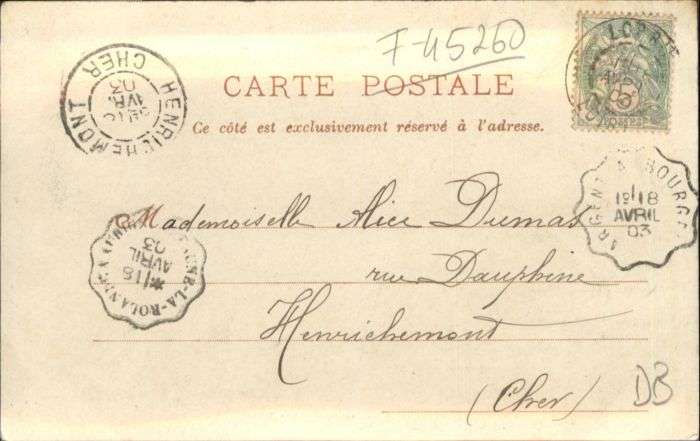 F-45260
CARTE POSTALE
Ce côté est exclusivement réservé à l'adresse.
HENRICHEMONT
CHER
AVR.
03
ARGENT A BOURGES
1º/18
AVRIL
03
LA-ROLANDE
*/18
AVRIL
03
Mademoiselle Alice Dumas
rue Dauphine
Henrichemont
(Cher)
DB